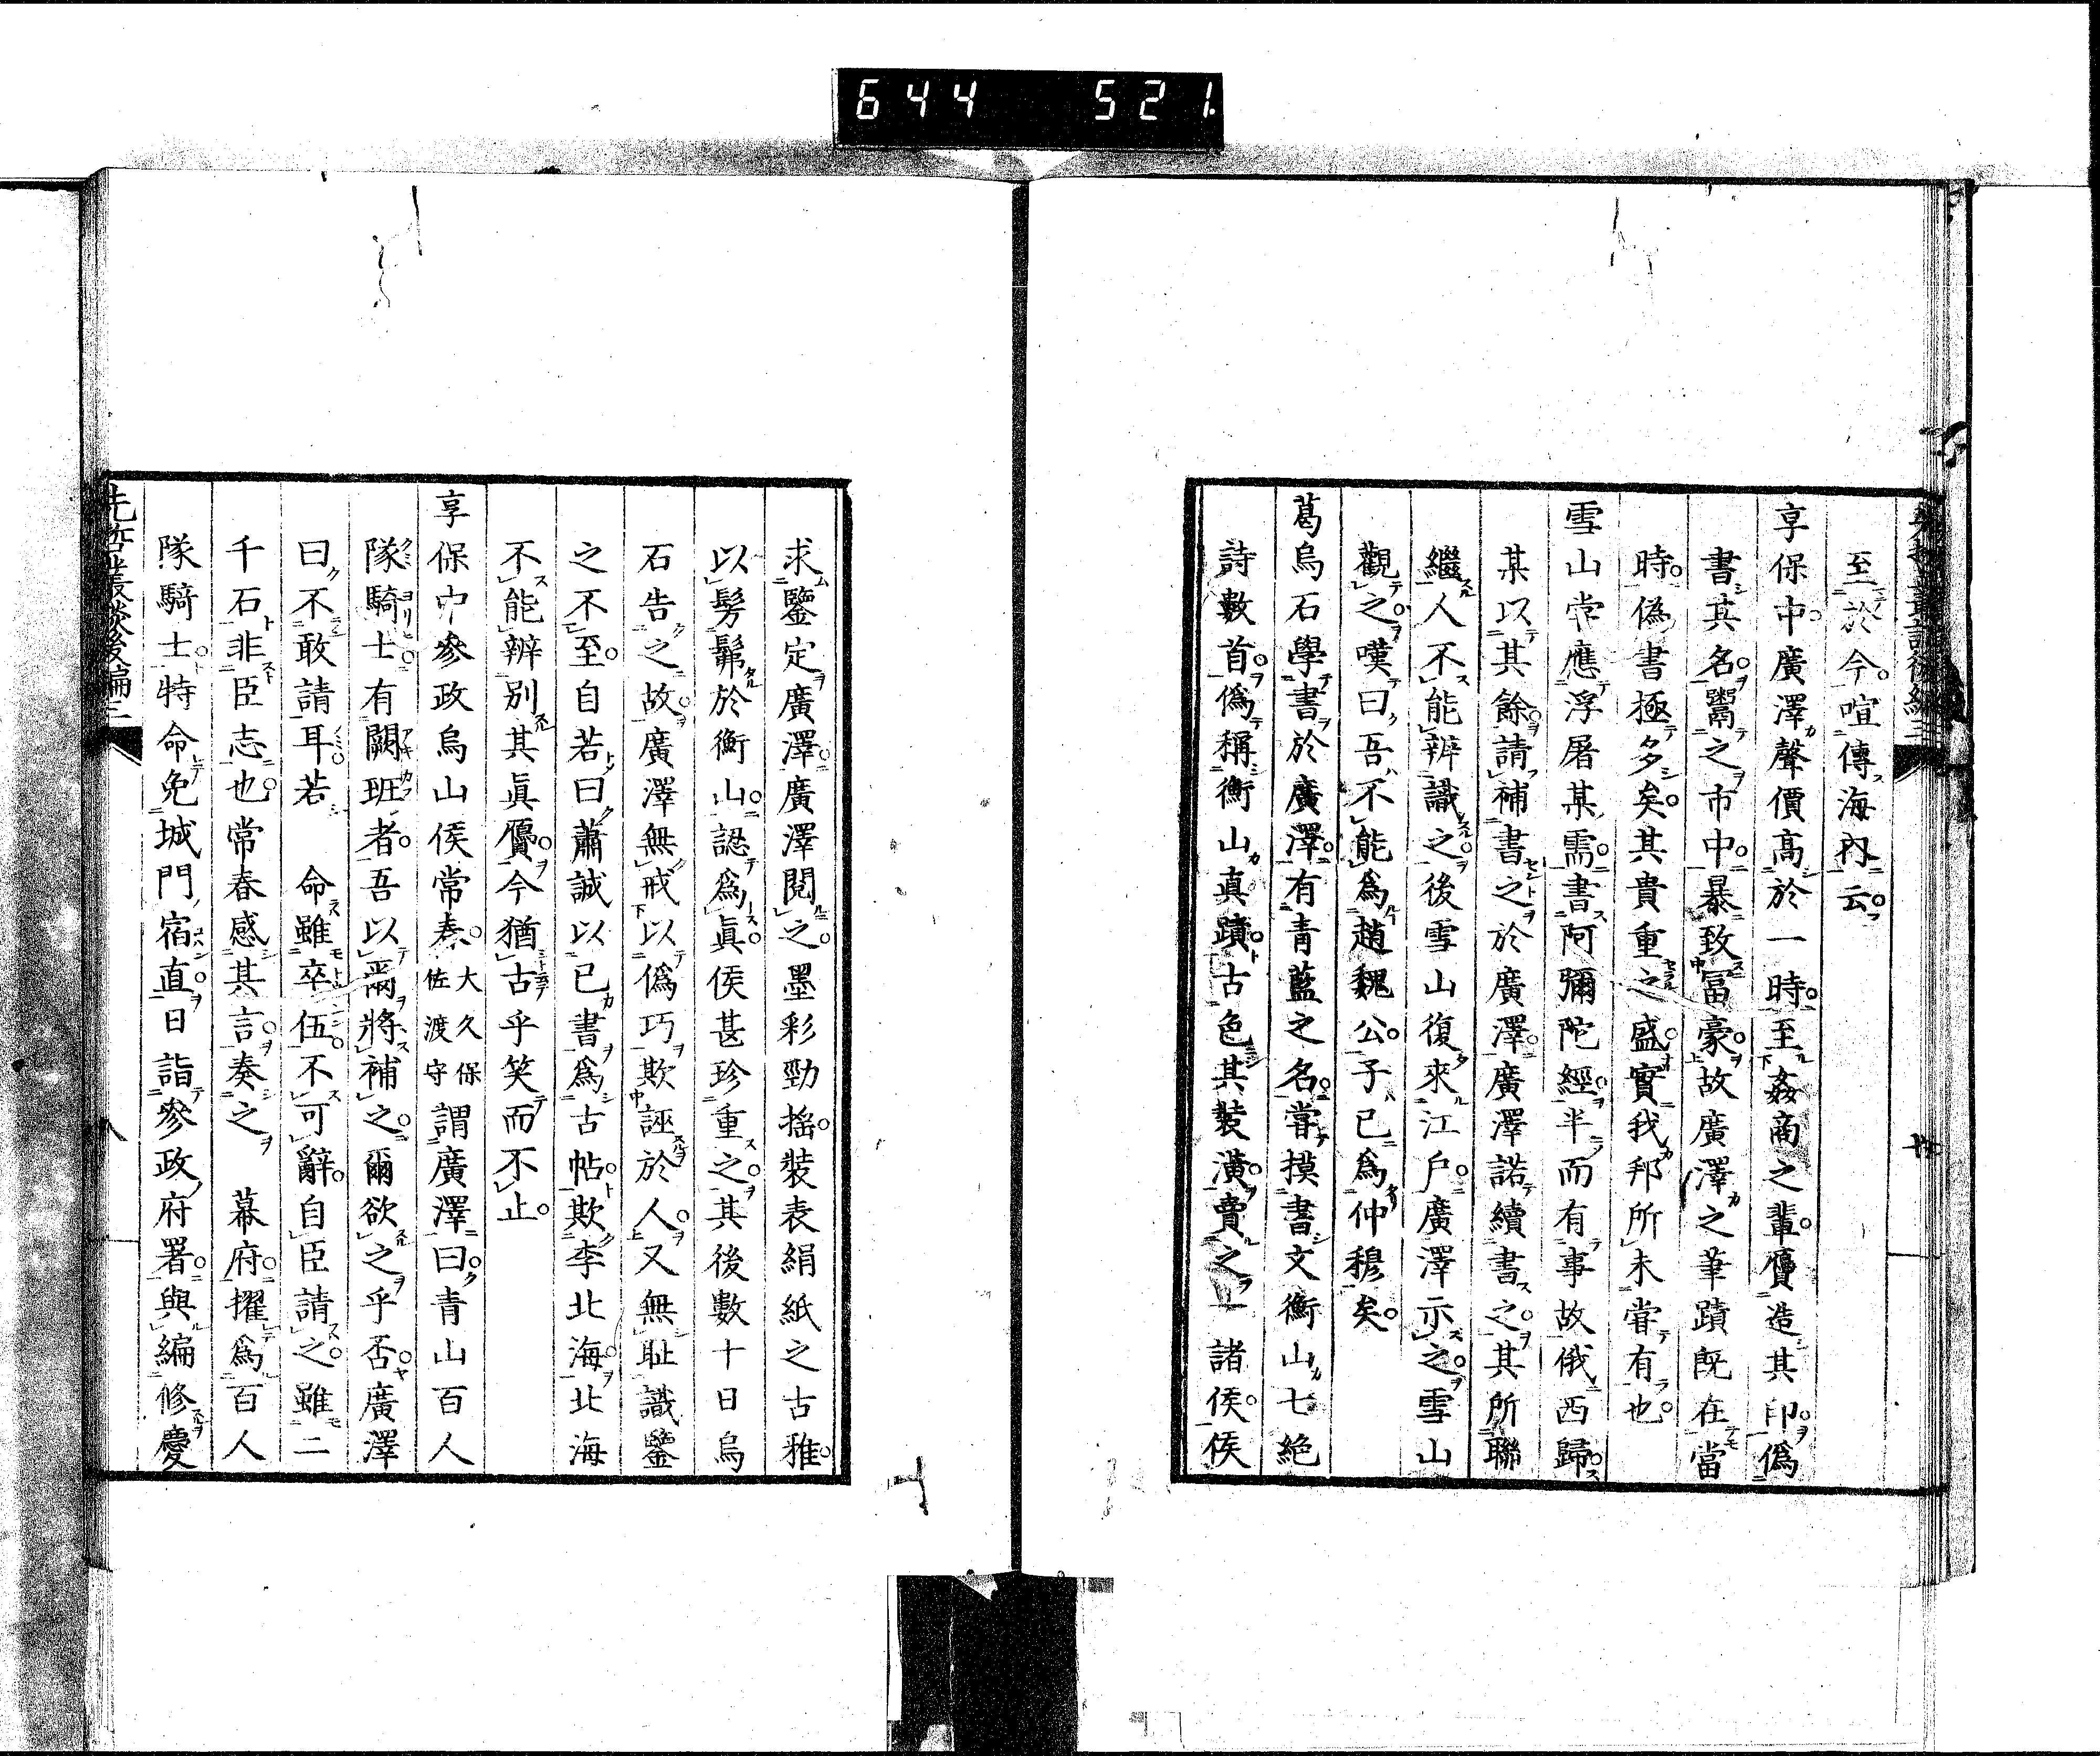 644 521.
至於今喧傳海內云
享保中廣澤聲價高於一時至姦商之輩贋造其印僞
書其名鬻之市中暴致冨豪故廣澤之筆蹟既在當
時僞書極多矣其貴重之盛實我邦所未嘗有也
雪山常應浮屠某需書阿彌陀經半而有事故俄西歸
某以其餘請補書之於廣澤廣澤諾續書之其所聯
繼人不能辨識之後雪山復來江戸廣澤示之雪山
觀之嘆曰吾不能爲趙魏公子已爲仲穆矣
葛烏石學書於廣澤有青藍之名嘗摸書文衡山七絕
詩數首僞稱衡山真蹟古色其裝潢賣之一諸侯侯
求鑒定廣澤廣澤閱之墨彩勁搖裝表絹紙之古雅
以髣髴於衡山認爲眞侯甚珍重之其後數十日烏
石告之故廣澤無戒以僞巧欺誣於人又無耻識鑒
之不至自若曰蕭誠以己書爲古帖欺李北海北海
不能辨別其眞贋今猶古乎笑而不止
享保中參政烏山侯常春大久保佐渡守謂廣澤曰青山百人
隊騎士有闕班者吾以爾將補之爾欲之乎否廣澤
曰不敢請耳若 命雖卒伍不可辭自臣請之雖二
千石非臣志也常春感其言奏之 幕府擢爲百人
隊騎士特命免城門宿直日詣參政府署與編修慶
先哲叢談後編三 八